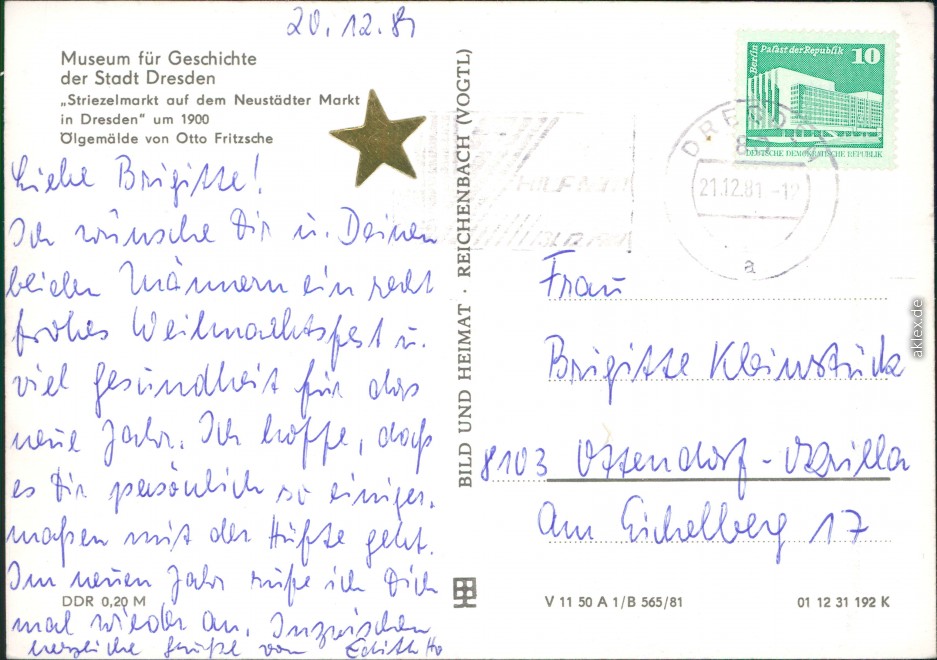 20.12.81
Museum für Geschichte
der Stadt Dresden
„Striezelmarkt auf dem Neustädter Markt
in Dresden" um 1900
Ölgemälde von Otto Fritzsche
Liebe Brigitte!
Ich wünsche Dir u. Deinen
beiden Männern ein recht
frohes Weihnachtsfest u.
viel Gesundheit für das
neue Jahr. Ich hoffe, daß
es Dir persönlich so einiger-
maßen mit der Hüfte geht.
Im neuen Jahr rufe ich Dich
mal wieder an. Inzwischen
herzliche Grüße von Edith
DDR 0,20 M
BILD UND HEIMAT · REICHENBACH (VOGTL)
Berlin Palast der Republik 10
DEUTSCHE DEMOKRATISCHE REPUBLIK
DRESDEN
21.12.81 -12
a
Frau
Brigitte Kleinstück
8103 Ottendorf-Okrilla
Am Eichelberg 17
V 11 50 A 1/B 565/81
01 12 31 192 K
aklex.de